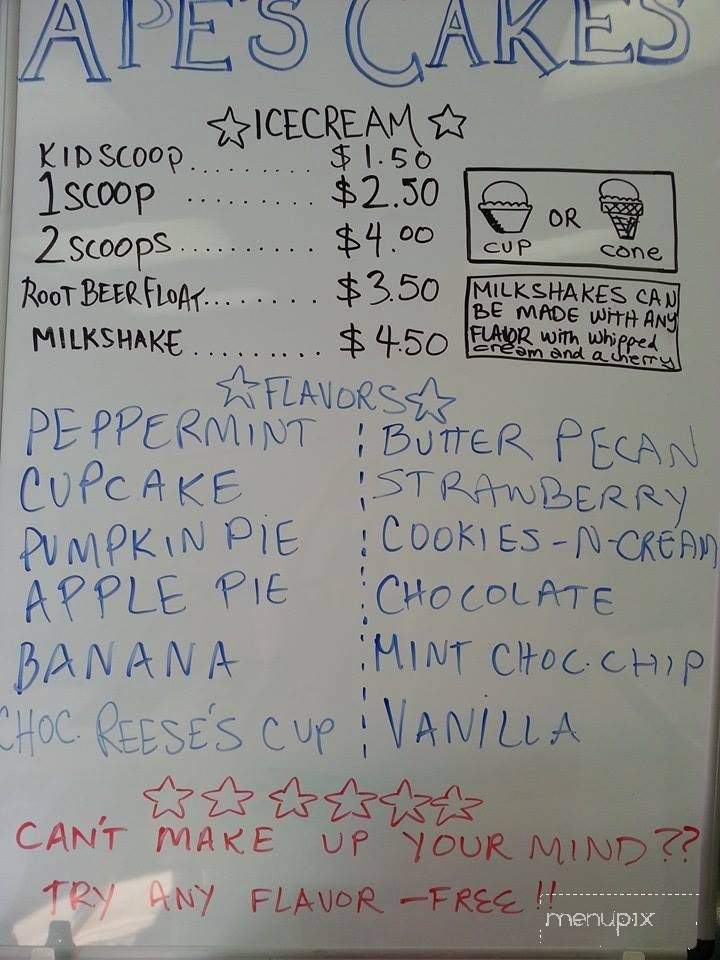 APE'S CAKES
ICECREAM
KID SCOOP.......... $1.50
1 SCOOP .......... $2.50
2 SCOOPS.......... $4.00
ROOT BEER FLOAT........ $3.50
MILKSHAKE.......... $4.50
CUP OR cone
MILKSHAKES CAN
BE MADE WITH ANY
FLAVOR with whipped
cream and a cherry
FLAVORS
PEPPERMINT
CUPCAKE
PUMPKIN PIE
APPLE PIE
BANANA
CHOC. REESE'S CUP
BUTTER PECAN
STRAWBERRY
COOKIES-N-CREAM
CHOCOLATE
MINT CHOC. CHIP
VANILLA
CAN'T MAKE UP YOUR MIND??
TRY ANY FLAVOR -FREE!!
menupix